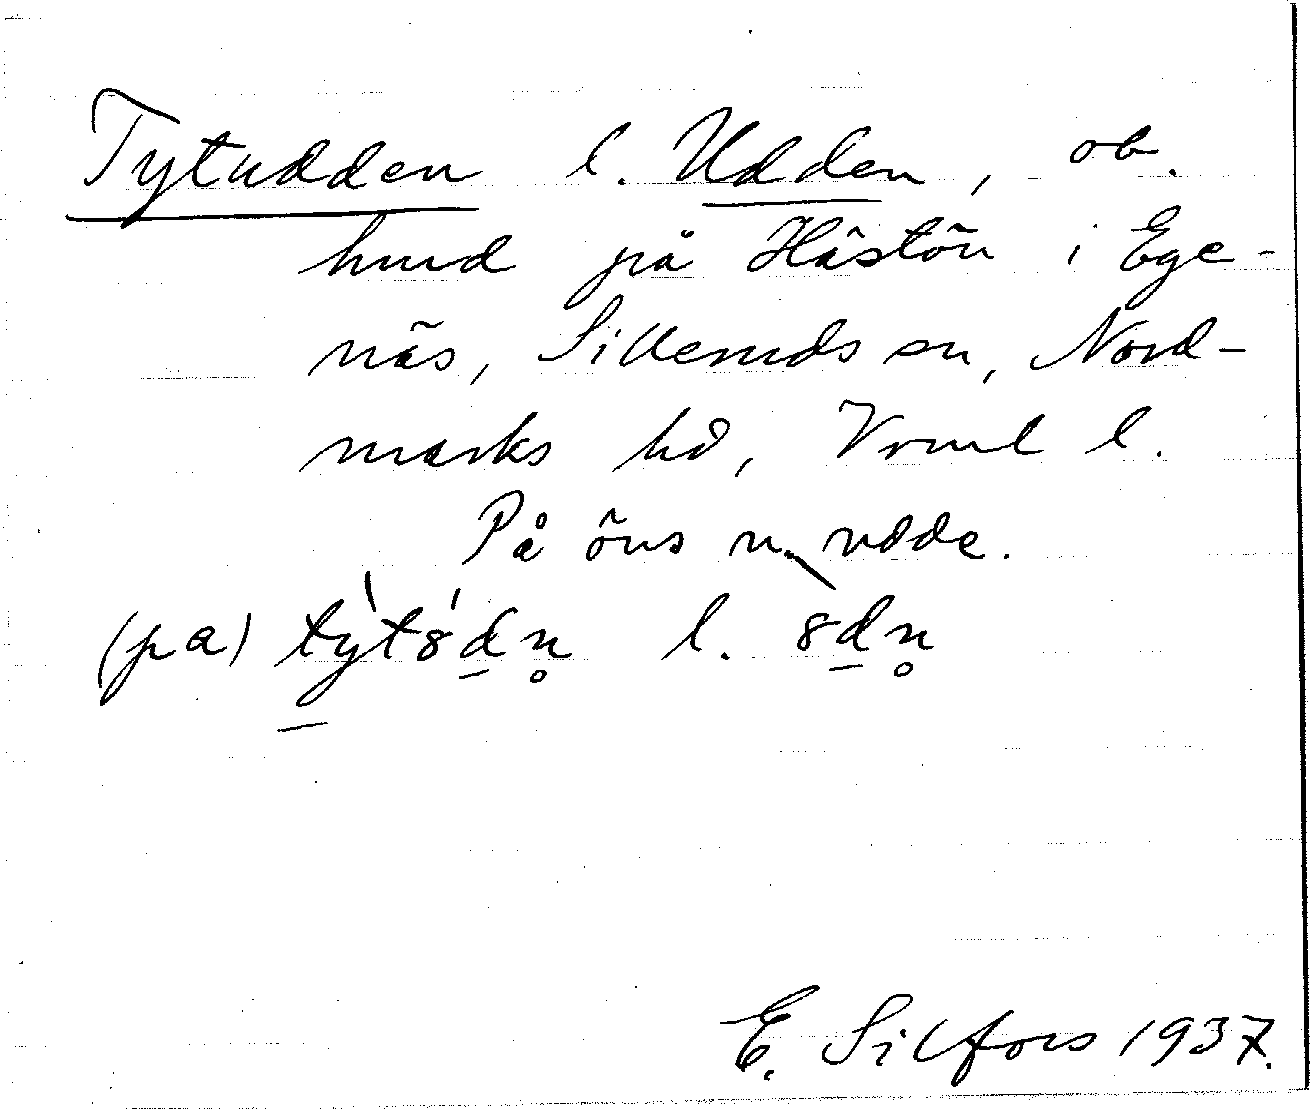 Tytudden l. Udden, ob.
hmd på Hästön i Ege-
näs, Silleruds sn, Nord-
marks hd, Vrml l.
På öns n. udde.
(pa) tỳ̠t8́d̠n̥ l. 8d̠n̥
E. Silfors 1937.